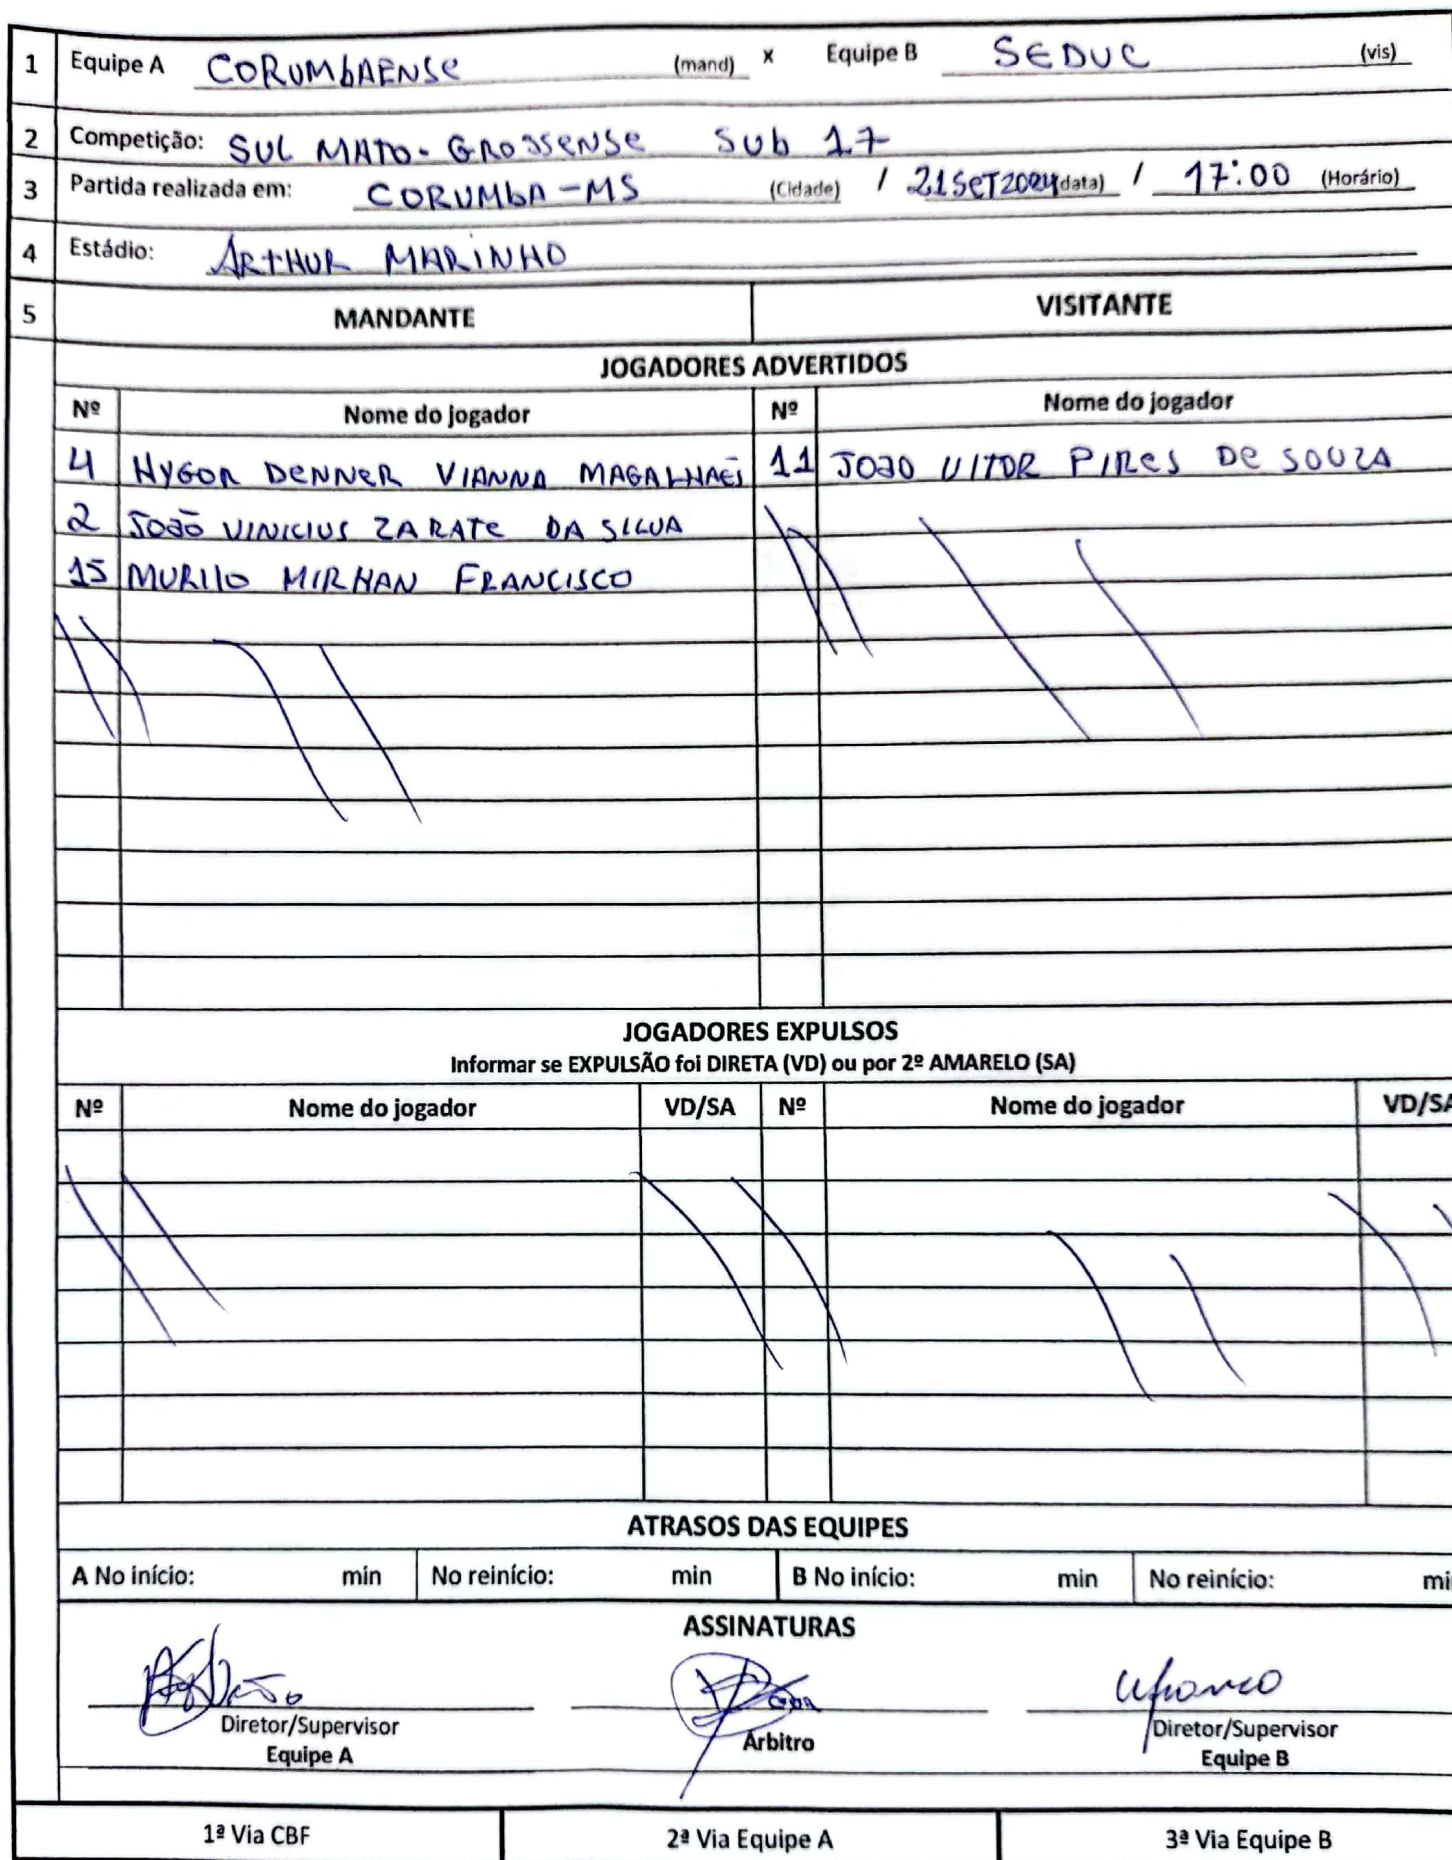 1 Equipe A CORUMBAENSE (mand) x Equipe B SEDUC (vis)
2 Competição: SUL MATO-GROSSENSE SUB 17
3 Partida realizada em: CORUMBA-MS (Cidade) / 21SET2024 (data) / 17:00 (Horário)
4 Estádio: ARTHUR MARINHO
5 MANDANTE VISITANTE
JOGADORES ADVERTIDOS
Nº Nome do jogador Nº Nome do jogador
4 HYGOR DENNER VIANNA MAGALHAES 11 JOAO VITOR PIRES DE SOUZA
2 JOÃO VINICIUS ZARATE DA SILVA
15 MURILO MIRHAN FRANCISCO
JOGADORES EXPULSOS
Informar se EXPULSÃO foi DIRETA (VD) ou por 2º AMARELO (SA)
Nº Nome do jogador VD/SA Nº Nome do jogador VD/SA
ATRASOS DAS EQUIPES
A No início: min No reinício: min B No início: min No reinício: mi
ASSINATURAS
Diretor/Supervisor Árbitro Diretor/Supervisor
Equipe A Equipe B
1ª Via CBF 2ª Via Equipe A 3ª Via Equipe B